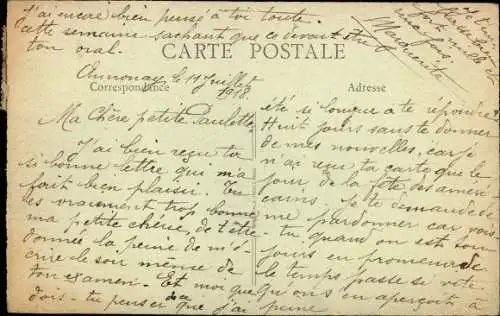 J'ai encore bien pensé à toi toute
cette semaine sachant que ce devait être
ton oral.
Je t'en
mille
Marguerite
CARTE POSTALE
Annonay le 11 Juillet
1918
Correspondance
Adresse
Ma Chère petite Paulette
J'ai bien reçu ta
si bonne lettre qui m'a
fait bien plaisir. Tu
es vraiment trop bonne
ma petite chérie, de t'être
donnée la peine de m'é-
crire le soir même de
ton examen. Et moi que
dois-tu penser de que j'ai
été si longue à te répondre
Huit jours sans te donner
de mes nouvelles, car je
n'ai reçu ta carte que le
jour de la fête des améri
cains. Je te demande de
me pardonner car vois-
tu quand on est tou
jours en promenade
le temps passe si vite
qu'on s'en aperçoit à
peine